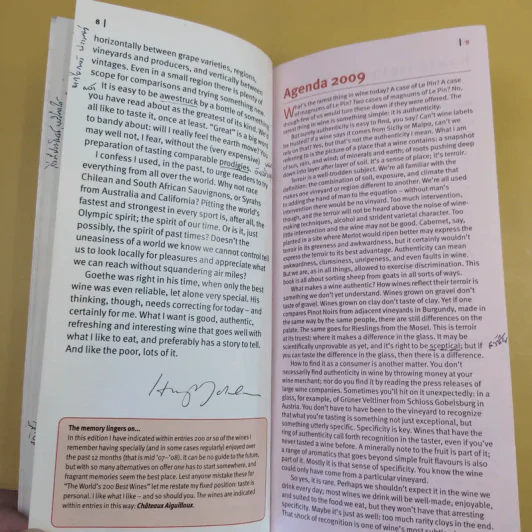 8 |
horizontally between grape varieties, regions,
vineyards and producers, and vertically between
vintages. Even in a small region there is plenty of
scope for comparisons and trying something new.
It is easy to be awestruck by a bottle of something
you have read about as the greatest of its kind. We'd
all like to taste it, once at least. "Great" is a big word
to bandy about: will I really feel the earth move? You
may well not, I fear, without the (very expensive)
preparation of tasting comparable prodigies.
I confess I used, in the past, to urge readers to try
everything from all over the world. Why not rate
Chilean and South African Sauvignons, or Syrahs
from Australia and California? Pitting the world's
fastest and strongest in every sport is, after all, the
Olympic spirit; the spirit of our time. Or is it, just
possibly, the spirit of past times? Doesn't the
uneasiness of a world we know we cannot control tell
us to look locally for pleasures and appreciate what
we can reach without squandering air miles?
Goethe was right in his time, when only the best
wine was even reliable, let alone very special. His
thinking, though, needs correcting for today – and
certainly for me. What I want is good, authentic,
refreshing and interesting wine that goes well with
what I like to eat, and preferably has a story to tell.
And like the poor, lots of it.
The memory lingers on...
In this edition I have indicated within entries 200 or so of the wines I
remember having specially (and in some cases regularly) enjoyed over
the past 12 months (that is mid '07–'08). It can be no guide to the future,
but with so many alternatives on offer one has to start somewhere, and
fragrant memories seem the best place. Lest anyone mistake these for
"The World's 200 Best Wines" let me restate my fixed position: taste is
personal. I like what I like – and so should you. The wines are indicated
within entries in this way: Château Aiguilloux.
| 9
Agenda 2009
What's the rarest thing in wine today? A case of Le Pin? A case
of magnums of Le Pin? Two cases of magnums of Le Pin? No,
though few of us would turn these down if they were offered. The
rarest thing in wine is something simple: it is authenticity.
Surely authenticity is easy to find, you say? Can't wine labels
be trusted? If a wine says it comes from Sicily or Maipo, can't we
rely on that? Yes, but that's not the authenticity I mean. What I am
referring to is the picture of a place that a wine contains: a snapshot
of sun, rain, and wind; of minerals and earth; of roots pushing deep
down into layer after layer of soil. It's a sense of place; it's terroir.
Terroir is a well-trodden subject. We're all familiar with the
definition: the combination of soil, exposure, and climate that
makes one vineyard or region different to another. We're all used
to adding the hand of man to the equation – without man's
intervention there would be no vineyard. Too much intervention,
though, and the terroir will not be heard above the noise of wine-
making techniques, alcohol and strident varietal character. Too
little intervention and the wine may not be good. Cabernet, say,
planted in a site where Merlot would ripen better may express the
terroir in its greenness and awkwardness, but it certainly wouldn't
express the terroir to its best advantage. Authenticity can mean
awkwardness, clumsiness, unripeness, and even faults in wine.
But we are, as in all things, allowed to exercise discrimination. This
book is all about sorting sheep from goats in all sorts of ways.
What makes a wine authentic? How wines reflect their terroir is
something we don't yet understand. Wines grown on gravel don't
taste of gravel. Wines grown on clay don't taste of clay. Yet if one
compares Pinot Noirs from adjacent vineyards in Burgundy, made in
the same way by the same people, there are still differences on the
palate. The same goes for Rieslings from the Mosel. This is terroir
at its truest: where it makes a difference in the glass. It may be
scientifically unprovable as yet, and it's right to be sceptical; but if
you can taste the difference in the glass, then there is a difference.
How to find it as a consumer is another matter. You don't
necessarily find authenticity in wine by throwing money at your
wine merchant; nor do you find it by reading the press releases of
large wine companies. Sometimes you'll hit on it unexpectedly: in a
glass, for example, of Grüner Veltliner from Schloss Gobelsburg in
Austria. You don't have to have been to the vineyard to recognize
that what you're tasting is something not just exceptional, but
something utterly specific. Specificity is key. Wines that have the
ring of authenticity call forth recognition in the taster, even if you've
never tasted a wine before. A minerally note to the fruit is part of it;
a range of aromatics that goes beyond simple fruit flavours is also
part of it. Mostly it is that sense of specificity. You know the wine
could only have come from a particular vineyard.
So yes, it is rare. Perhaps we shouldn't expect it in the wine we
drink every day; most wines we drink will be well-made, enjoyable,
and suited to the food we eat, but they won't have that arresting
specificity. Maybe it's just as well: too much rarity cloys in the end.
That shock of recognition is one of wine's most